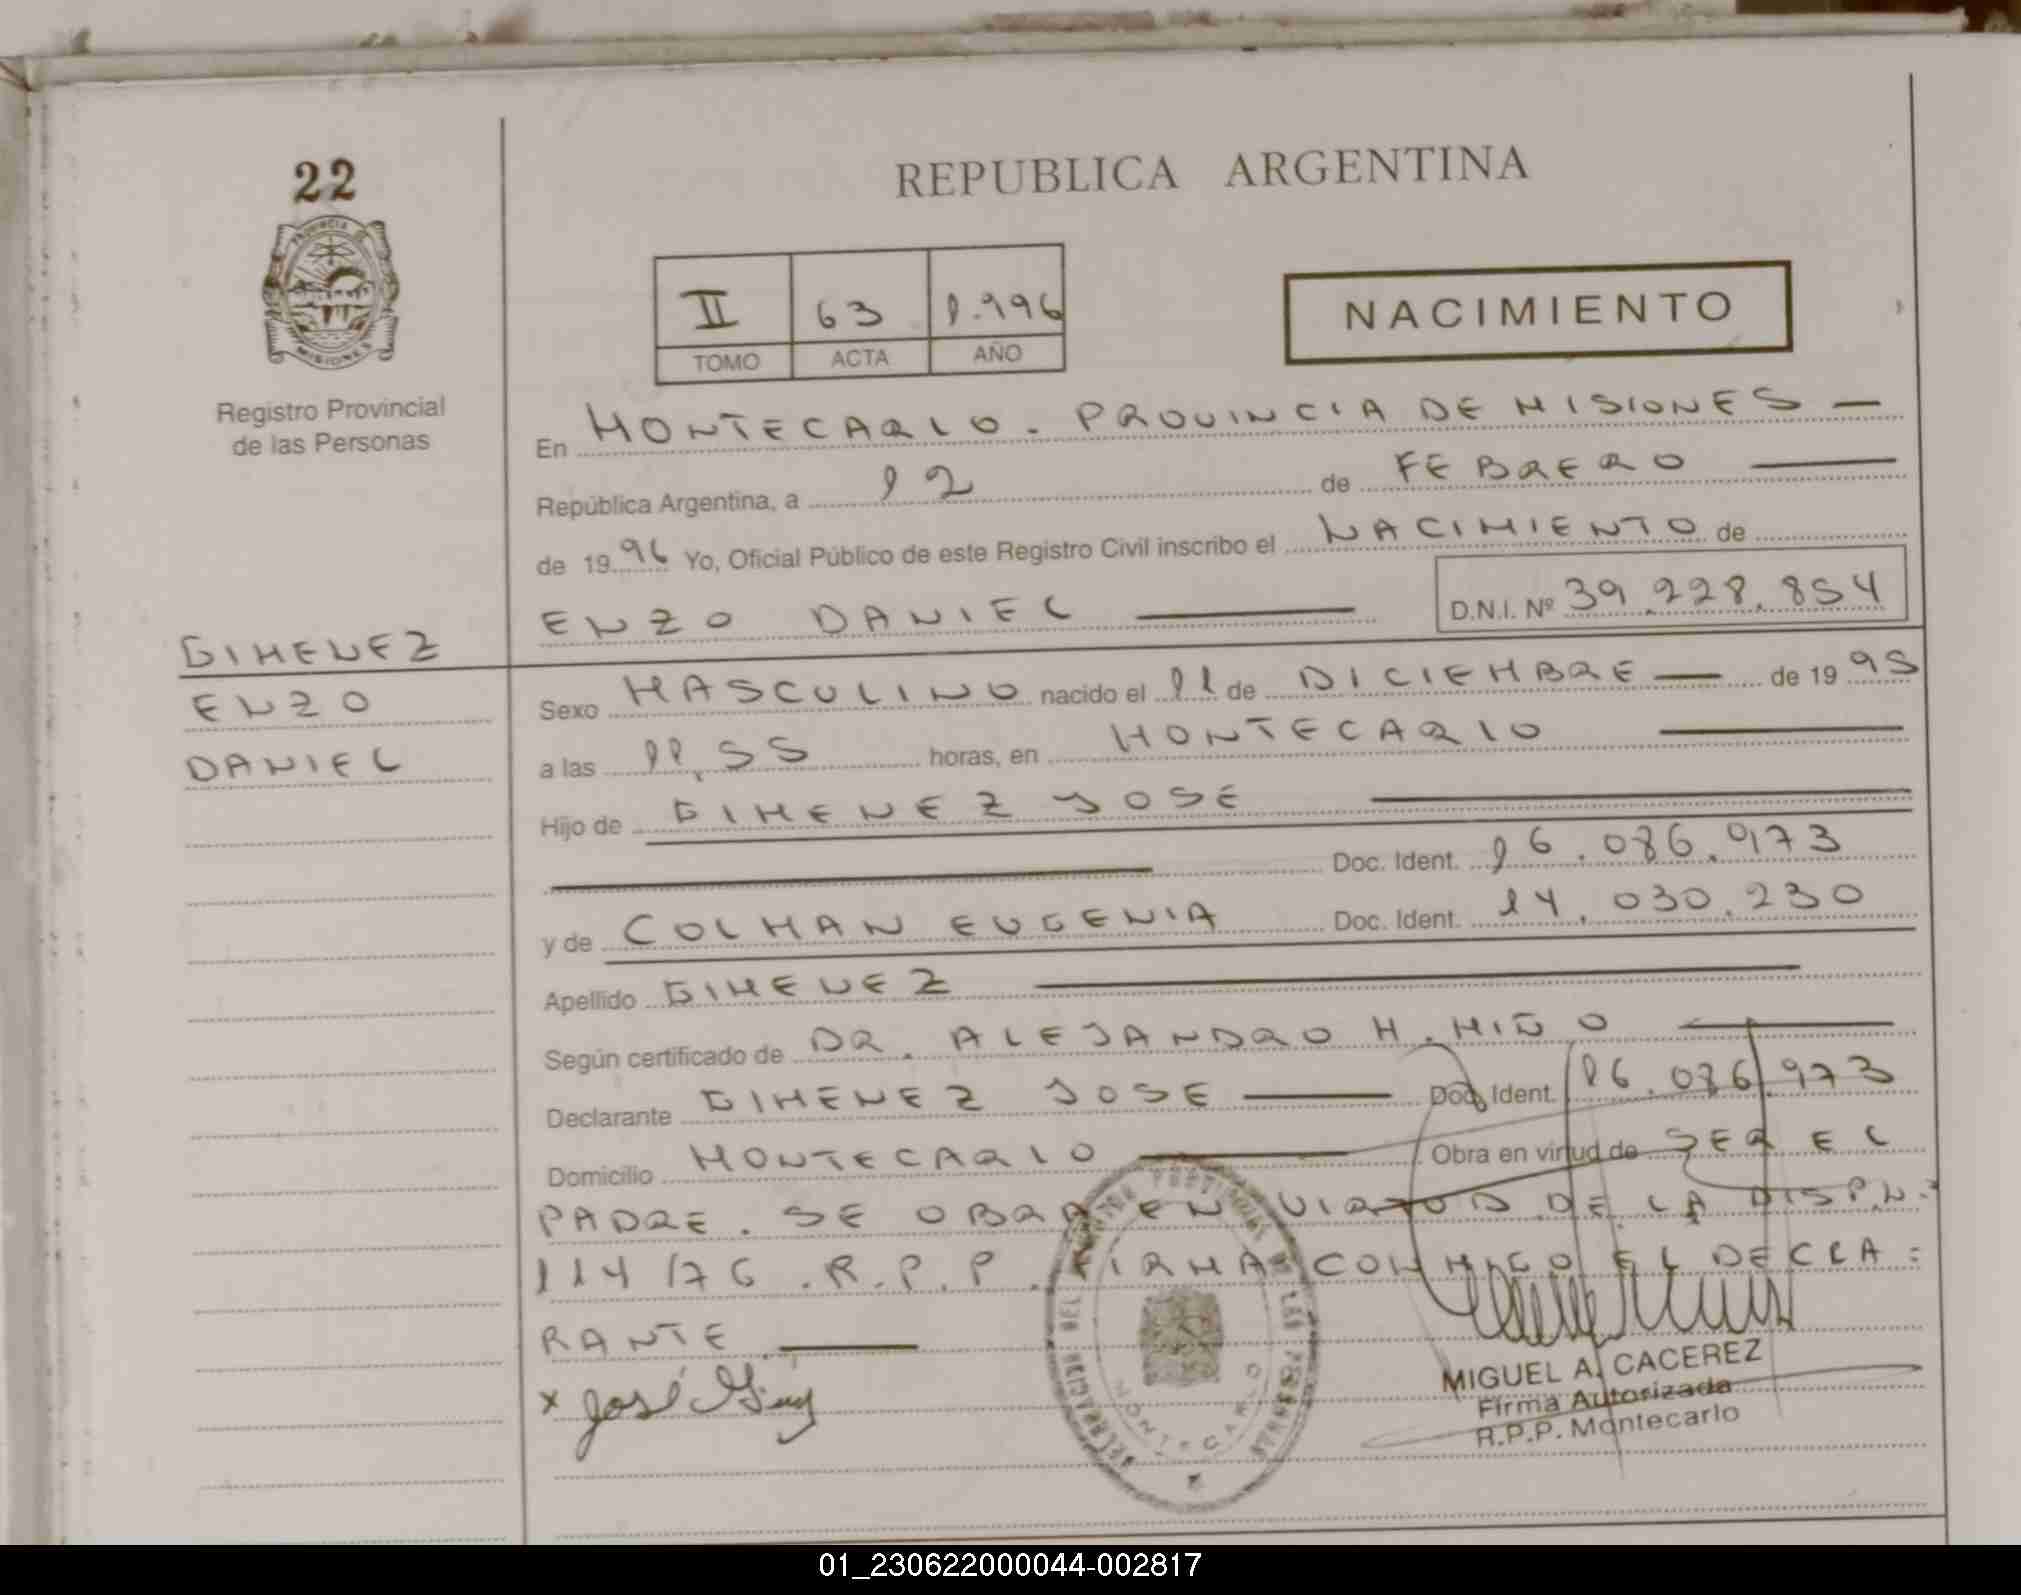 22
REPUBLICA ARGENTINA
PROVINCIA DE
MISIONES
II 63 1.996
TOMO ACTA AÑO
NACIMIENTO
Registro Provincial
de las Personas
En MONTECARLO. PROVINCIA DE MISIONES —
República Argentina, a 12 de FEBRERO —
de 1996 Yo, Oficial Público de este Registro Civil inscribo el NACIMIENTO de
ENZO DANIEL — D.N.I. Nº 39.228.854
GIMENEZ
ENZO
DANIEL
Sexo MASCULINO nacido el 11 de DICIEMBRE — de 1995
a las 11,55 horas, en MONTECARLO —
Hijo de GIMENEZ JOSE —
Doc. Ident. 16.086.973
y de COLMAN EUGENIA Doc. Ident. 14.030.230
Apellido GIMENEZ —
Según certificado de DR. ALEJANDRO H. MIÑO —
Declarante GIMENEZ JOSE — Doc. Ident. 16.086.973
Domicilio MONTECARLO — Obra en virtud de SER EL
PADRE. SE OBRA EN VIRTUD DE LA DISP.N.º
114/76.R.P.P. FIRMA CONMIGO EL DECLA=
RANTE. —
x José
DELEGACION DEL REGISTRO PROVINCIAL DE LAS PERSONAS
MONTECARLO
MIGUEL A. CACEREZ
Firma Autorizada
R.P.P. Montecarlo
01_230622000044-002817